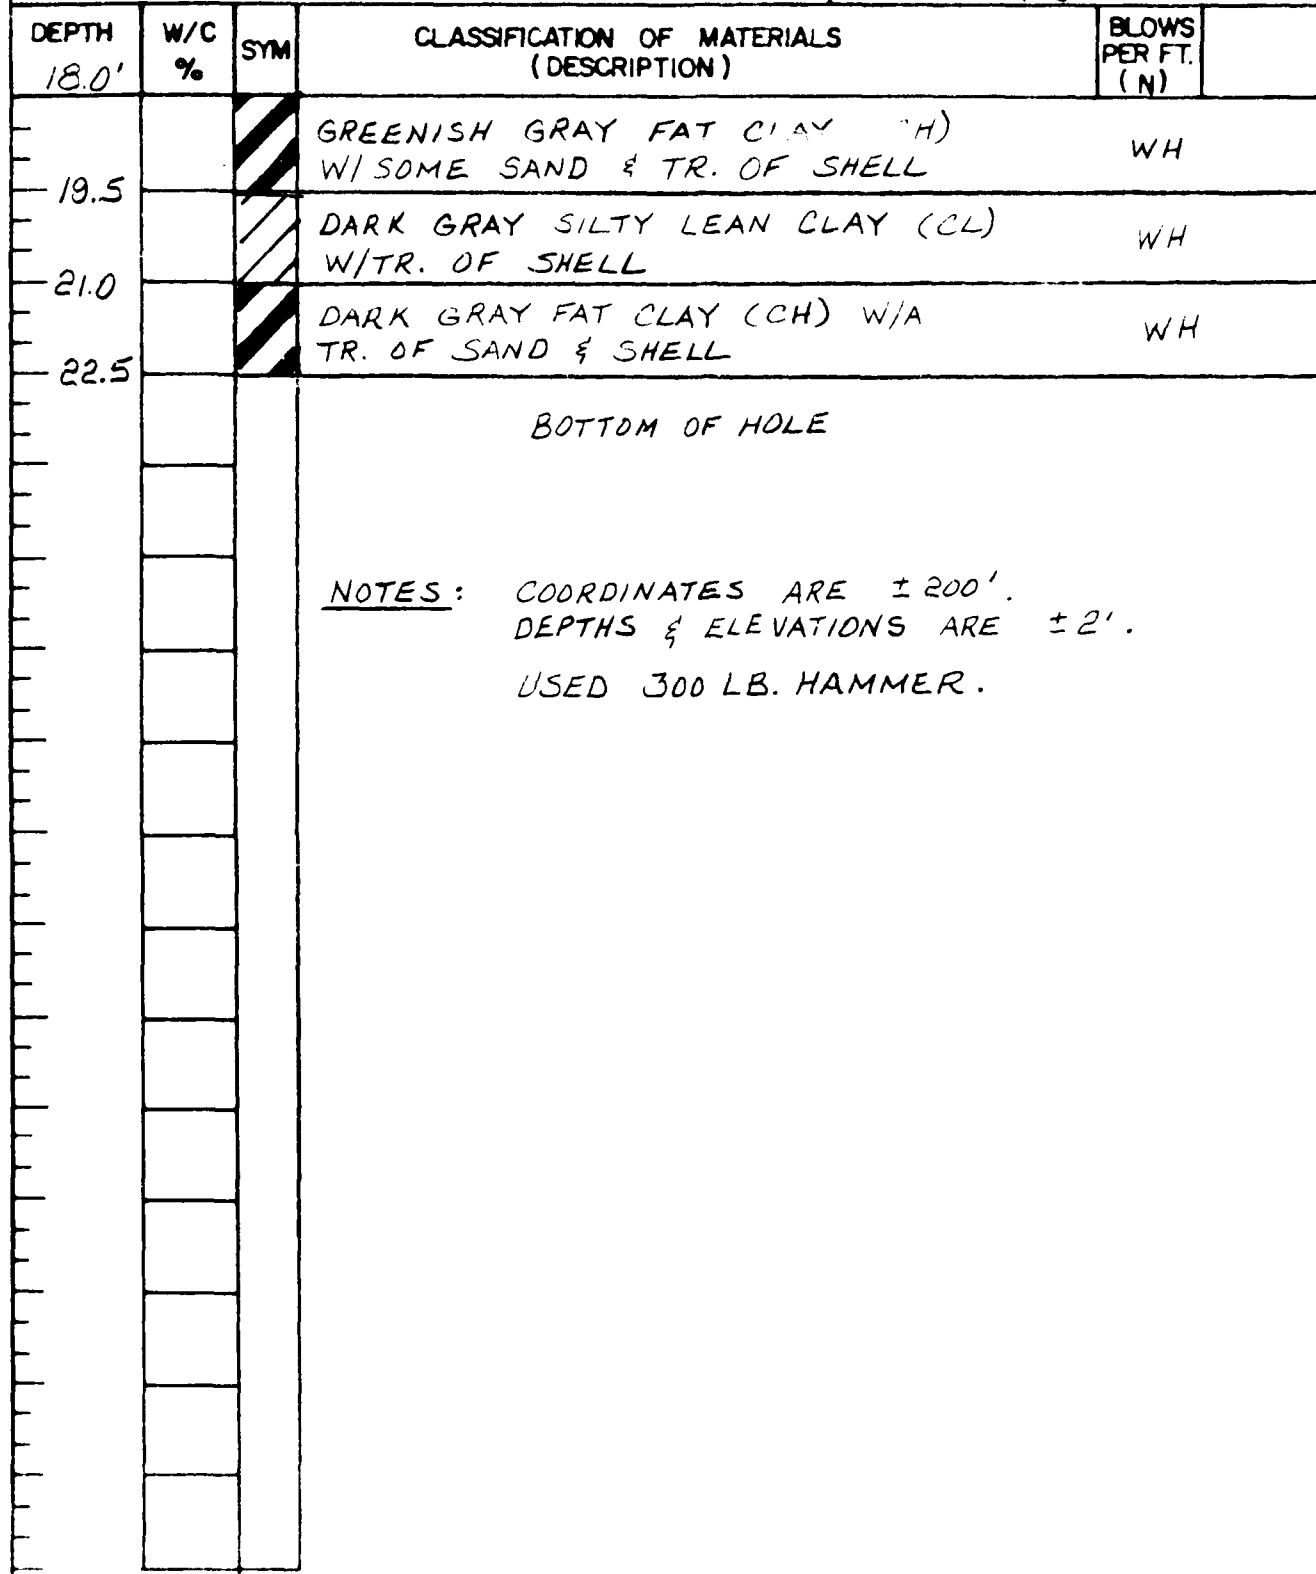 DEPTH
18.0'
W/C
%
SYM
CLASSIFICATION OF MATERIALS
(DESCRIPTION)
BLOWS
PER FT.
(N)
GREENISH GRAY FAT CLAY H)
W/ SOME SAND & TR. OF SHELL
WH
19.5
DARK GRAY SILTY LEAN CLAY (CL)
W/TR. OF SHELL
WH
21.0
DARK GRAY FAT CLAY (CH) W/A
TR. OF SAND & SHELL
WH
22.5
BOTTOM OF HOLE
NOTES: COORDINATES ARE ± 200'.
DEPTHS & ELEVATIONS ARE ± 2'.
USED 300 LB. HAMMER.